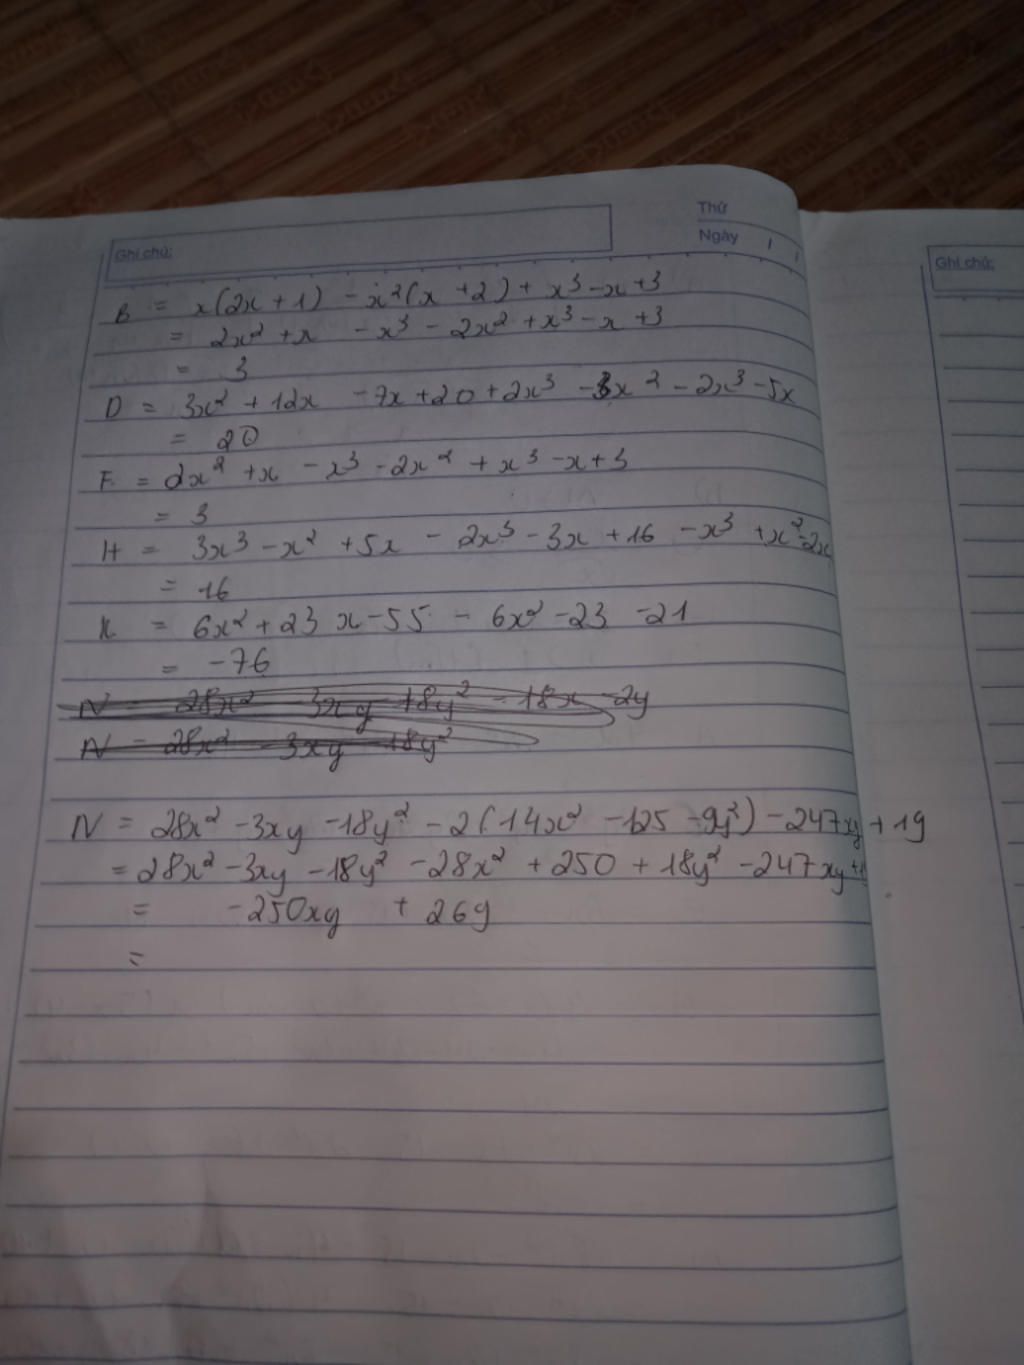 Thứ
Ngày / /
Ghi chú:
Ghi chú:
B = x(2x + 1) - x²(x + 2) + x³ - x + 3
= 2x² + x - x³ - 2x² + x³ - x + 3
= 3
D = 3x² + 12x - 7x + 20 + 2x³ - 3x² - 2x³ - 5x
= 20
F = 2x² + x - x³ - 2x² + x³ - x + 3
= 3
H = 3x³ - x² + 5x - 2x³ - 3x + 16 - x³ + x² - 2x
= 16
K = 6x² + 23x - 55 - 6x² - 23 - 21
= -76
N = 28x² - 3xy - 18y² - 18x - 2y
N = 28x² - 3xy - 18y²
N = 28x² - 3xy - 18y² - 2(14x² - 125 - 9y²) - 247xy + 19
= 28x² - 3xy - 18y² - 28x² + 250 + 18y² - 247xy + 19
= -250xy + 269
=